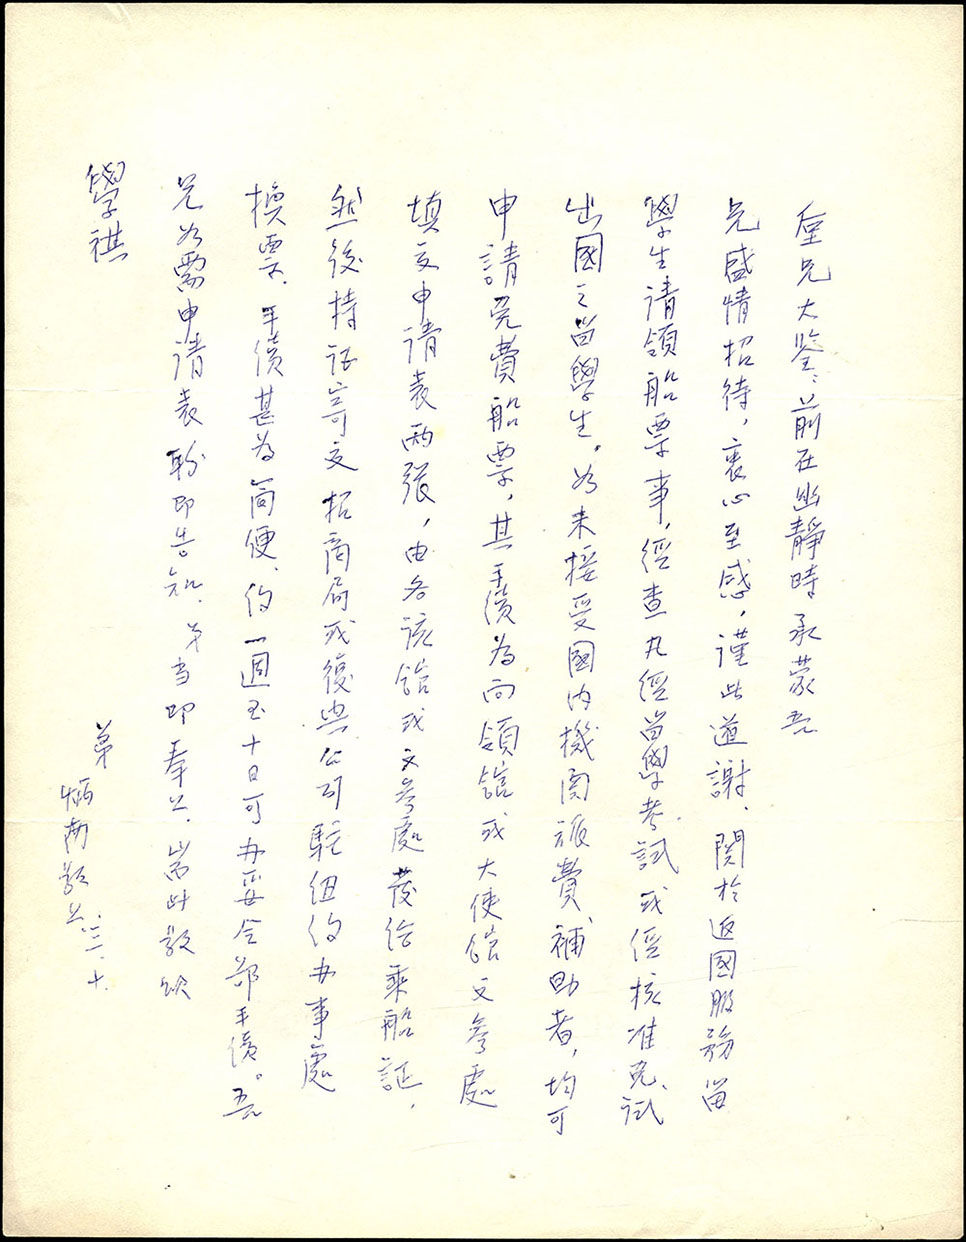 兄大鑒：前在幽靜時承蒙吾
兄盛情招待，衷心至感，謹此道謝．関於返國服務留
學生請領船票事，經查凡經留學考試或經核准免試
出國之留學生。如未接受國內機関旅費補助者，均可
申請免費船票，其手續為向領館或大使館文參處
填交申請表兩張，由各該館或文參處發給乘船証，
然後持証寄交招商局或復興公司駐纽约办事處
換票．手續甚為简便．约一週至十日可办妥全部手續。吾
兄如需申請表盼即告知．弟当即奉上．耑此敬頌
學祺
弟
炳南敬上．三．十．